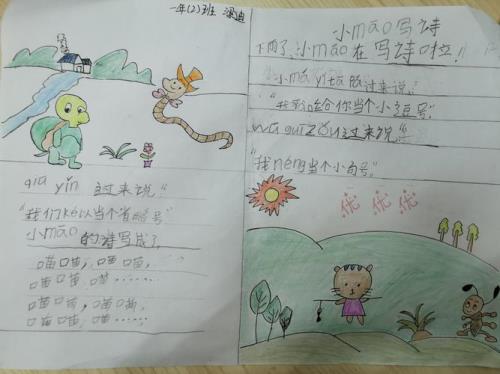 一年(2)班
小māo写诗
下雨了、小māo在写诗啦!
小mǎ yǐ 跑过来说:
"我可以给你当个小豆号"
wū guī zǒu过来说:
"我néng当个小句号"
优 优 优
qiū yǐn 过来说:
"我们kě以当个省略号"
小māo的诗写成了
喵喵,喵喵,
喵喵,喵……
喵喵,喵喵,
喵喵,喵……